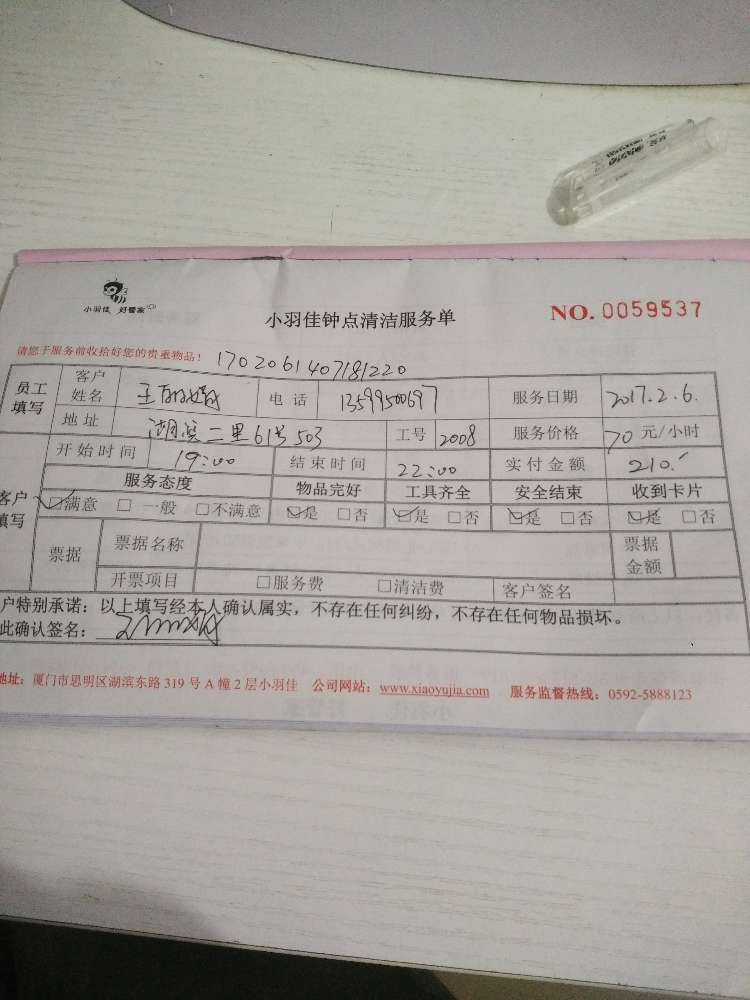 小羽佳 好管家
小羽佳钟点清洁服务单
NO. 0059537
请您于服务前收拾好您的贵重物品！
1702061407181220
员工填写 客户姓名 王丽 电话 13599500697 服务日期 2017.2.6.
地址 湖滨二里61号503 工号 2008 服务价格 70 元/小时
开始时间 19:00 结束时间 22:00 实付金额 210.
客户填写 服务态度 物品完好 工具齐全 安全结束 收到卡片
☑满意 □一般 □不满意 ☑是 □否 ☑是 □否 ☑是 □否 ☑是 □否
票据 票据名称 票据金额
开票项目 □服务费 □清洁费 客户签名
户特别承诺：以上填写经本人确认属实，不存在任何纠纷，不存在任何物品损坏。
此确认签名：
地址：厦门市思明区湖滨东路319号A幢2层小羽佳 公司网站：www.xiaoyujia.com 服务监督热线：0592-5888123